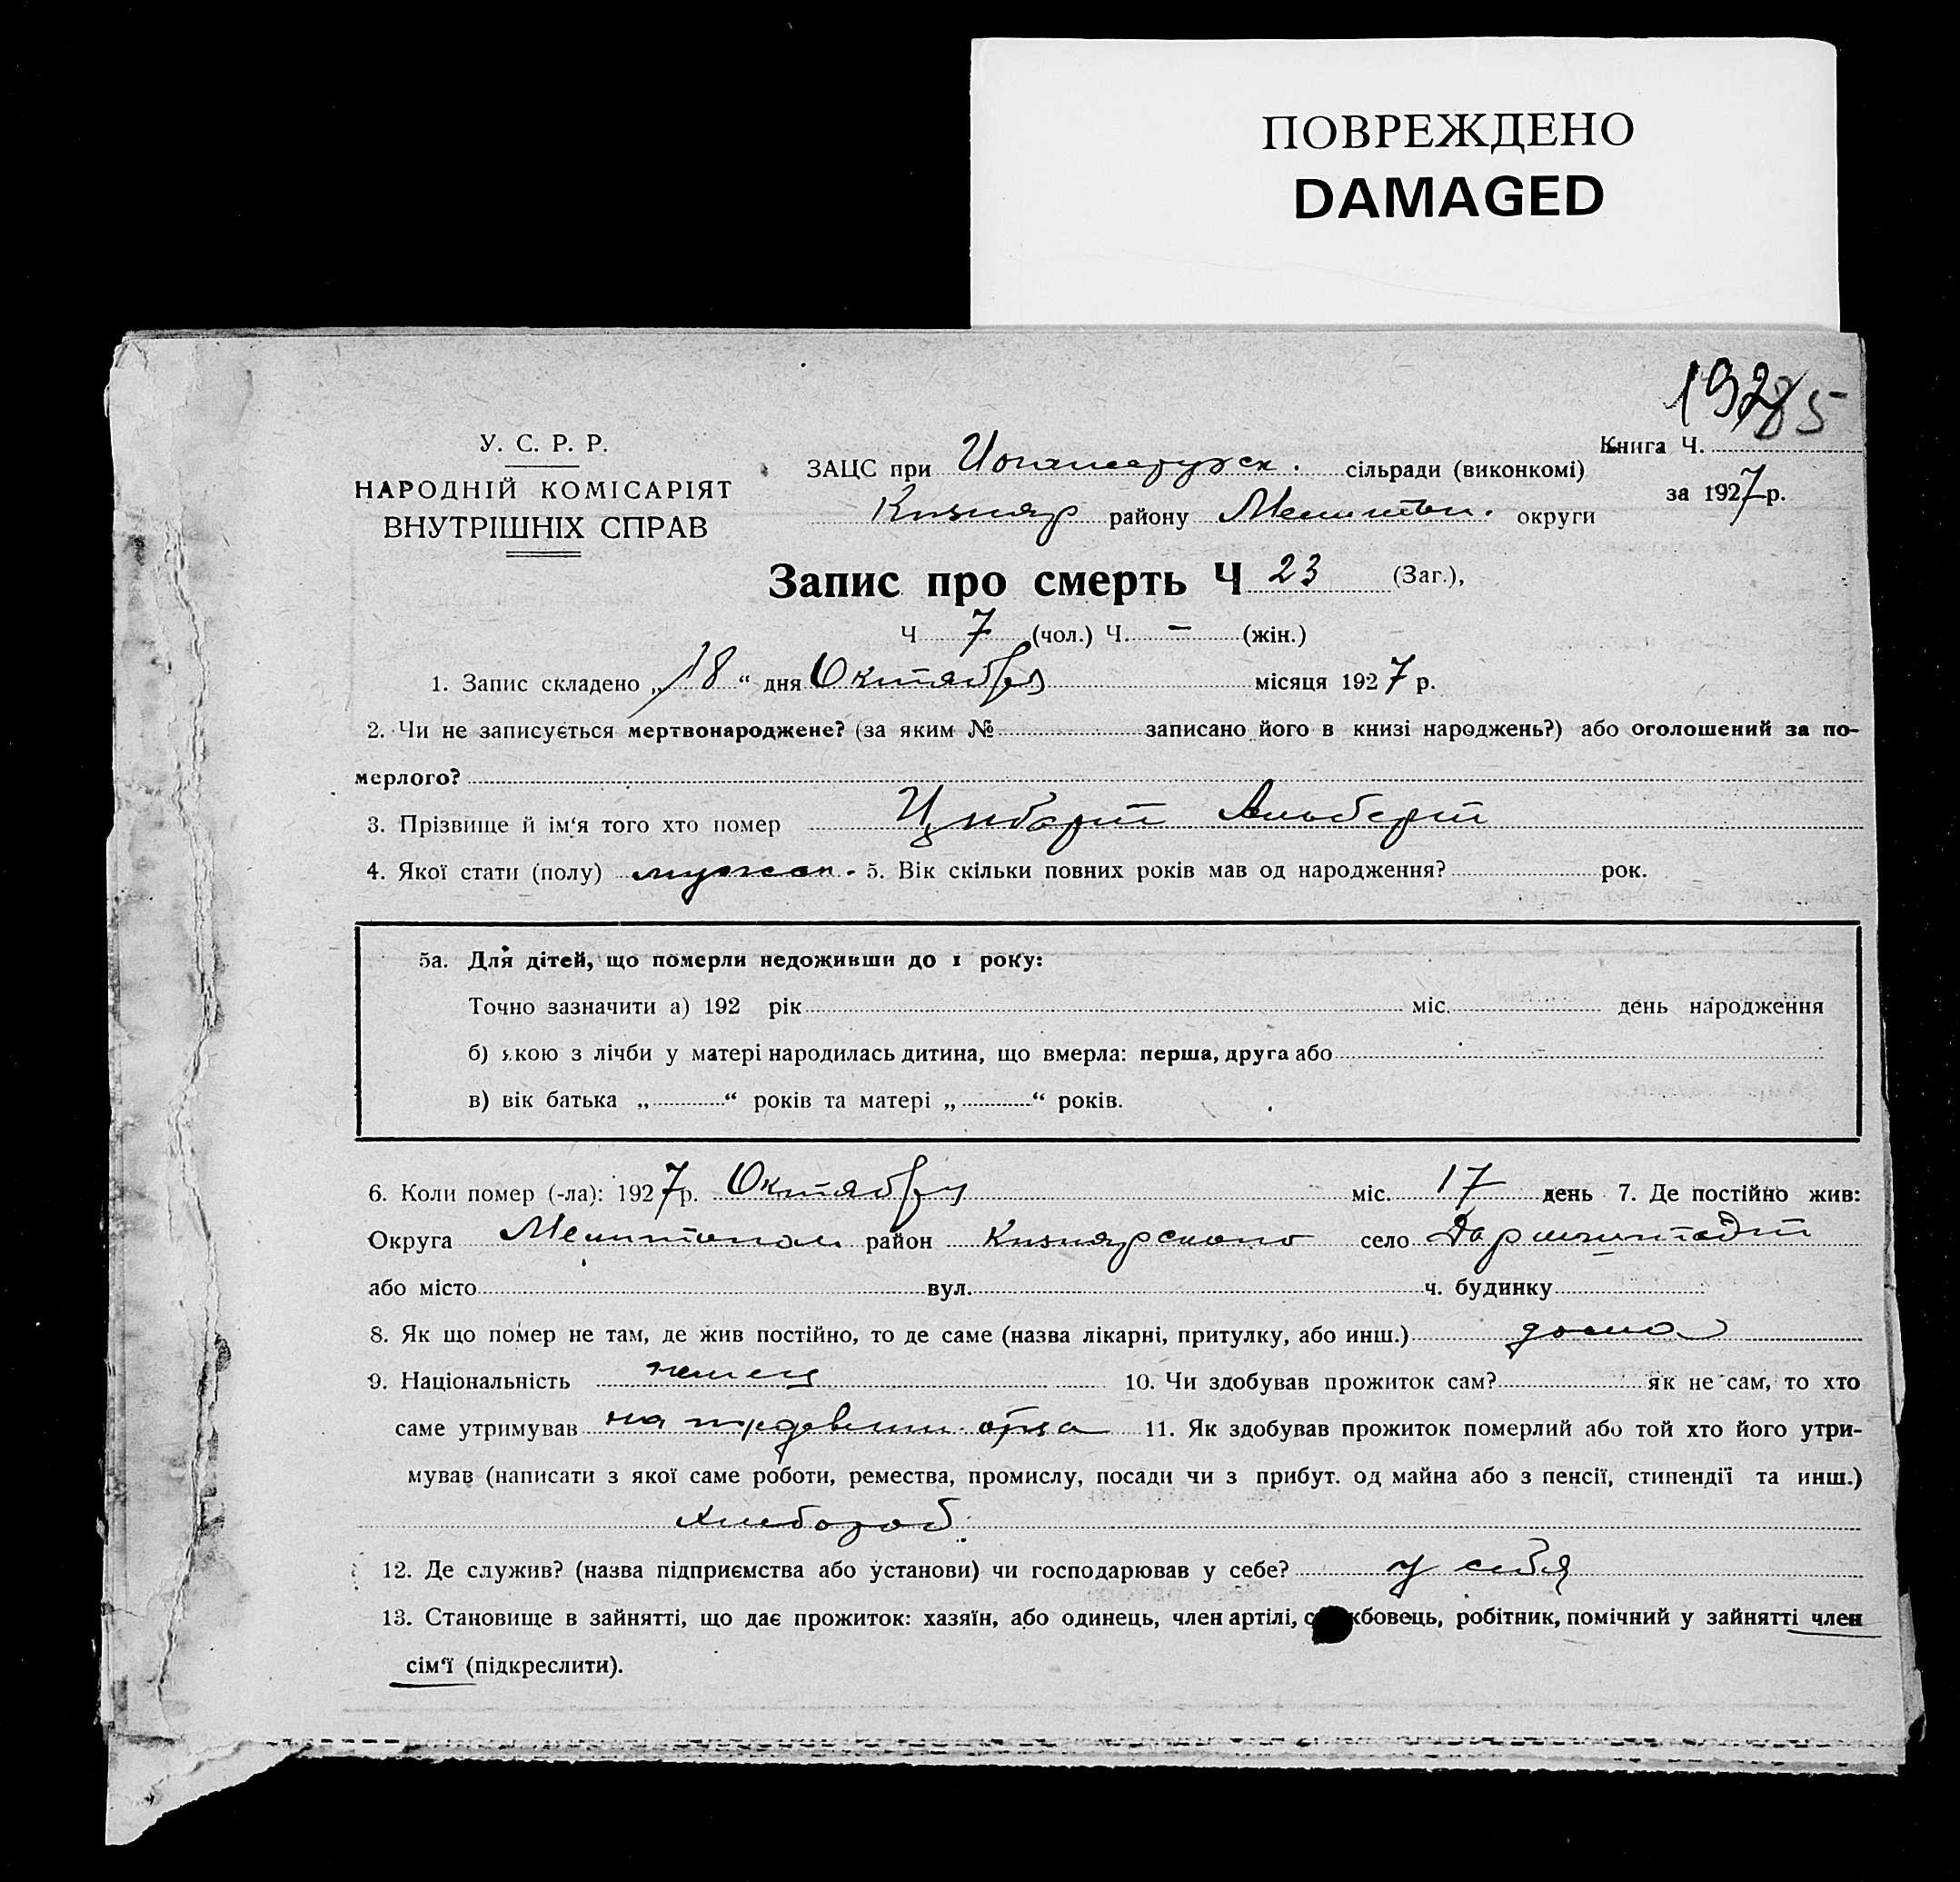 ПОВРЕЖДЕНО
DAMAGED
192
85
У. С. Р. Р.
НАРОДНІЙ КОМІСАРІЯТ
ВНУТРІШНІХ СПРАВ
Книга Ч.
за 1927 р.
ЗАЦС при сільради (виконкомі)
Кизияр району Мелитоп. округи
Запис про смерть Ч 23 (Заг.),
Ч 7 (чол.) Ч. – (жін.)
1. Запис складено „18“ дня Октября місяця 1927 р.
2. Чи не записується мертвонароджене? (за яким № записано його в книзі народжень?) або оголошений за по-
мерлого?
3. Прізвище й ім‘я того хто помер Цибарт Альберт
4. Якої стати (полу) мужск. 5. Вік скільки повних років мав од народження? рок.
5а. Для дітей, що померли недоживши до 1 року:
Точно зазначити а) 192 рік міс. день народження
б) якою з лічби у матері народилась дитина, що вмерла: перша, друга або
в) вік батька „ “ років та матері „ “ років.
6. Коли помер (-ла): 1927 р. Октября міс. 17 день 7. Де постійно жив:
Округа Мелитополь район Кизиярского село Дармштадт
або місто вул. ч. будинку
8. Як що помер не там, де жив постійно, то де саме (назва лікарні, притулку, або инш.) дома
9. Національність немец 10. Чи здобував прожиток сам? як не сам, то хто
саме утримував на иждевении отца 11. Як здобував прожиток померлий або той хто його утри-
мував (написати з якої саме роботи, ремества, промислу, посади чи з прибут. од майна або з пенсії, стипендії та инш.)
Хлебороб.
12. Де служив? (назва підприємства або установи) чи господарював у себе? у себя
13. Становище в зайнятті, що дає прожиток: хазяїн, або одинець, член артілі, службовець, робітник, помічний у зайнятті член
сім‘ї (підкреслити).